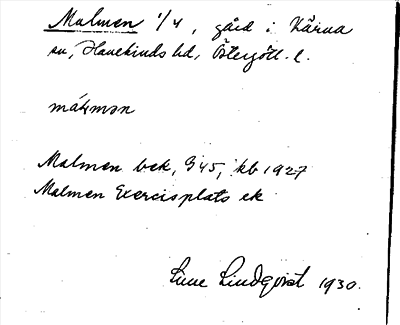 Malmen 1/4, gård i Kärna
sn, Hanekinds hd, Östergötl. l.
Malmen bek, G45, kb 1927
Malmen Exercisplats ek
Sune Lindqvist 1930.